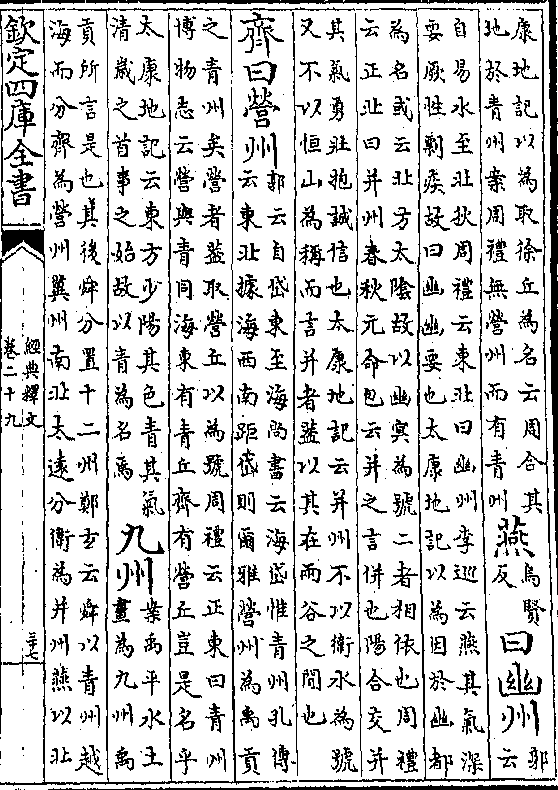 康地記以為取徐丘為名云周合其
地於青州案周禮無營州而有青州
燕
烏賢
反
曰幽州
郭
云
自易水至北狄周禮云東北曰幽州李巡云燕其氣深
要厥性剽疾故曰幽幽要也太康地記以為因於幽都
為名或云北方太陰故以幽冥為號二者相依也周禮
云正北曰并州春秋元命包云并之言併也陽合交并
其氣勇壯抱誠信也太康地記云并州不以衛水為號
又不以恒山為稱而言并者蓋以其在兩谷之間也
齊曰營州
郭云自岱東至海尚書云海岱惟青州孔傳
云東北據海西南距岱則爾雅營州為禹貢
之青州矣營者蓋取營丘以為號周禮云正東曰青州
博物志云營與青同海東有青丘齊有營丘豈是名乎
太康地記云東方少陽其色青其氣
清歲之首事之始故以青為名焉
九州
案禹平水土
畫為九州禹
貢所言是也其後舜分置十二州鄭玄云舜以青州越
海而分齊為營州冀州南北太遠分衛為并州燕以北
欽定四庫全書
經典釋文
卷二十九
三十七